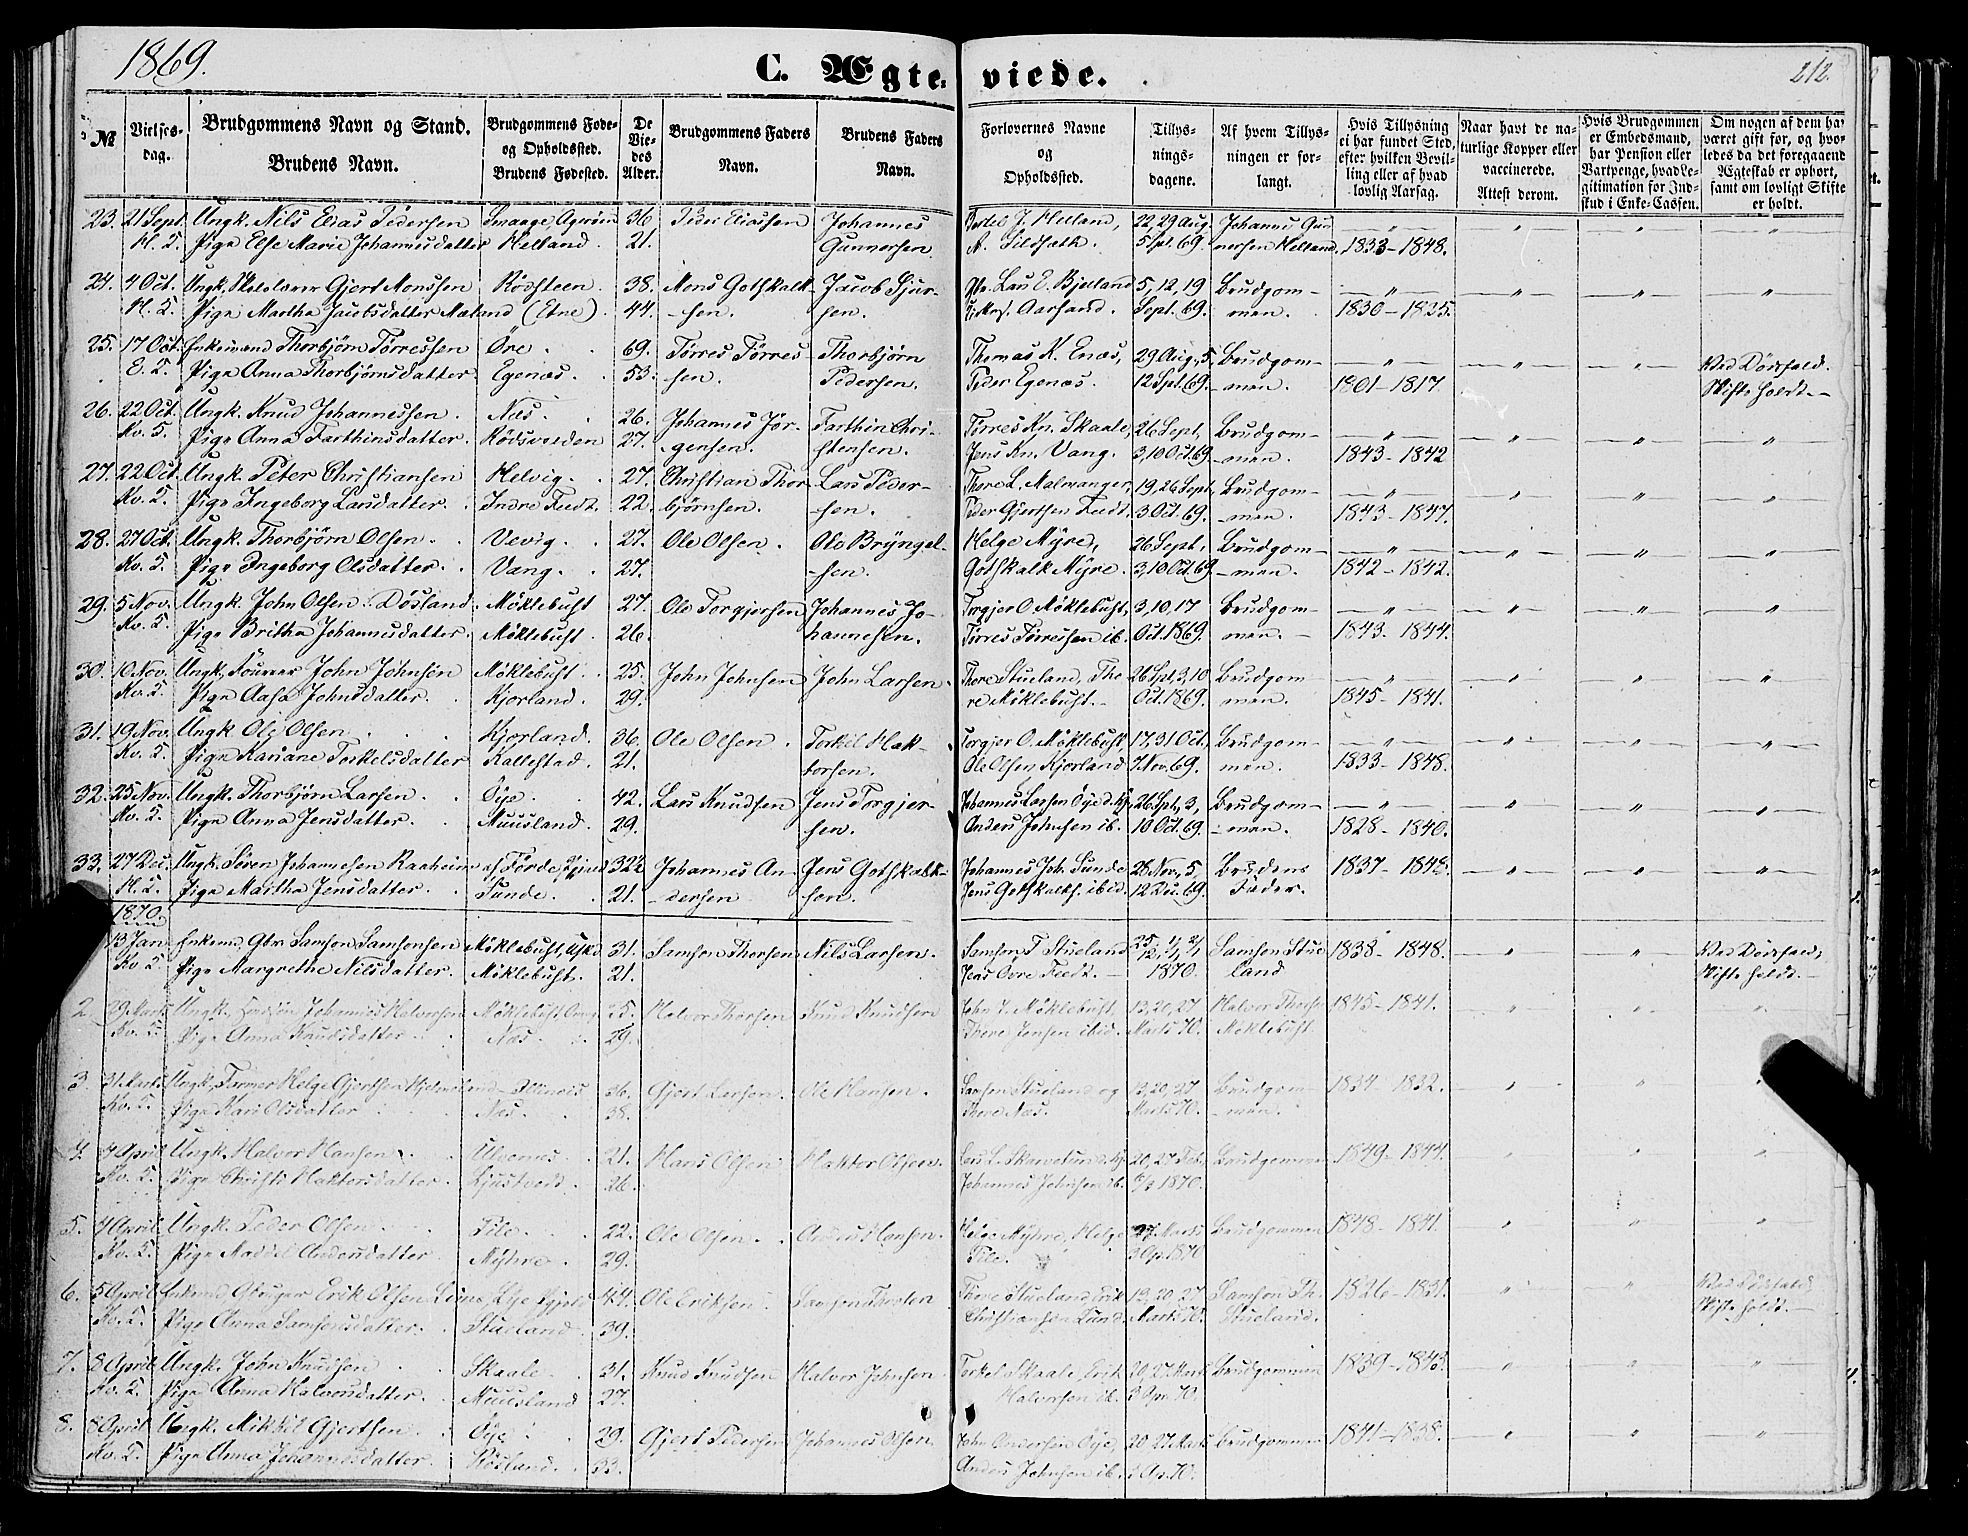 1869.
C. Ægteviede.
212.
№
Vielses-dag.
Brudgommens Navn og Stand.
Brudens Navn.
Brudgommens Føde- og Opholdssted.
Brudens Fødested.
De Viedes Alder.
Brudgommens Faders Navn.
Brudens Faders Navn.
Forlovernes Navne og Opholdssted.
Tillysningsdagene.
Af hvem Tillysningen er forlangt.
Hvis Tillysning ei har fundet Sted, efter hvilken Bevilling eller af hvad lovlig Aarsag.
Naar havt de naturlige Kopper eller vaccinerede. Attest derom.
Hvis Brudgommen er Embedsmand, har Pension eller Vartpenge, hvad Legitimation for Indskud i Enke-Cassen.
Om nogen af dem har været gift før, og hvorledes da det foregaaende Ægteskab er ophørt, samt om lovligt Skifte er holdt.
23. 21 Sept. Ungk. Nils Enas Pedersen 36 Johannes Hetland, 22, 29 Aug. Johannes Gun
H. K. Pige Else Marie Johannesdatter Hetland. 21. Gunnarsen. 5 Sept. 69. nersen Hetland. 1833 - 1848.
24. 4 Oct. Ungk. Skolelærer Gjert Monsen Rødsteen 38. Mons Gothskalk- Jacob Sjur- Lars E. Bjelland 5, 12, 19 Brudgom-
Pige Martha Jacobsdatter Mæland (Etne). 44. -sen. sen. Aarsand. Sept. 69. men. 1830 - 1825.
25. 17 Oct. Enkemand Thorbjørn Tørressen Øre. 69. Tørres Tørres- Thorbjørn Thomas K. Enæs, 29 Aug., 5, Brudgom- Ved Dødsfald.
Pige Anna Thorbjørnsdatter Egenæs. 53. sen. Pedersen. Peder Egenæs. 12 Sept. 69. men. 1801 - 1817. Skifte holdt.
26. 22 Oct. Ungk. Knud Johannessen. Næs. 26. Johannes Jør- Farthin Chri- Tørres Kn. Skaale, 26 Sept., Brudgom-
Kv. K. Pige Anna Farthinsdatter. 27. gensen. stensen. Jens Kn. Vang. 3, 10 Oct. 69. men. 1843 - 1842
27. 22 Oct. Ungk. Peter Christiansen Helvig. 27. Christian Thor- Lars Peder- Thore L. Malmanger, 19, 26 Sept., Brudgom-
Kv. K. Pige Ingeborg Larsdatter. Indre Fedt. 22. bjørnsen. sen. Peder Gjertsen Fedt. 3 Oct. 69. men. 1843 - 1847.
28. 27 Oct. Ungk. Thorbjørn Olsen. Vevig. 27. Ole Olsen. Ole Bryngel- Helge Myre, 26 Sept., Brudgom-
Kv. K. Pige Ingeborg Olsdatter. Vang. 27. -sen. Gothskalk Myre. 3, 10 Oct. 69. men. 1842 - 1842.
29. 5 Nov. Ungk. John Olsen Døsland Møklebust 27. Ole Torgjersen Johannes Jo- Torgjer O. Møklebust, 3, 10, 17 Brudgom-
Kv. K. Pige Britha Johannesdatter. Møklebust. 26. hannesen. Tørres Tørressen ib. Oct. 1869. men. 1843 - 1844.
30. 10 Nov. Ungk. Farmer John Johnsen Møklebust. 25. John Johnsen John Larsen. Thore Stueland, Tho 26 Sept., 3, 10 Brudgom-
Kv. K. Pige Aasa Johnsdatter. Kjorland. 29. re Møklebust. Oct. 1869. men. 1845 - 1841.
31. 19 Nov. Ungk. Ole Olsen. Kjorland. 36. Ole Olsen. Torkel Hak- Torgjer O. Møklebust, 17, 31 Oct., Brudgom-
Kv. K. Pige Kariane Torkelsdatter Kallestad. 21. torsen. Ole Olsen Kjorland 7 Nov. 69. men. 1833 - 1848.
32. 25 Nov. Ungk. Thorbjørn Larsen. Øye. 42. Lars Knudsen Jens Torgjer- Johannes Larsen Øye 26 Sept., 3, Brudgom-
Kv. K. Pige Anna Jensdatter. Muusland. 29. sen. Anders Johnsen ib. 10 Oct. 69. men. 1828 - 1840.
33. 27 Dec. Ungk. Søren Johannesen Raaheim af Førde 32 Johannes An- Jens Gothskalk- Johannes Joh. Sunde 28 Nov., 5, Brudens 1837 - 1848.
H. K. Pige Martha Jensdatter. Sunde. 21. dersen sen. Jens Gothskalks. ibid. 12 Dec. 69. Fader.
1870.
13 Jan. Enkemd. Gbr. Samson Samsonsen Møklebust, 31. Samson Thorsen Nils Larsen. Samson T. Stueland Samson Stue 1838 - 1848. Ved Dødsfald,
Kv. K. Pige Margrethe Nilsdatter. Møklebust. 21. Jens Øvre Fedt. 1870. land Skifte holdt.
2. 29 Marts Ungk. Johannes Halvorsen Møklebust 25. Halvor Thorsen Knud Knudsen John J. Møklebust, 13, 20, 27 Halvor Thorsen 1845 - 1841.
Kv. K. Pige Anna Knudsdatter. Næs. 29. Thore Jensen ibid. Marts 70. Møklebust.
3. 31 Marts Ungk. Farmer Helge Gjertsen Illinois 36. Gjert Larsen. Ole Hansen. Samson Stueland og 13, 20, 27 Brudgom- 1834 - 1832.
Kv. K. Pige Kari Olsdatter Næs. 38. Thore Næs. Marts 70. men.
4. 4 April Ungk. Halvor Hansen. Ulvenes. 21. Hans Olsen Haktor Olsen. 20, 27 Feb., Brudgommen 1849 - 1844.
Kv. K. Pige Christi Haktorsdatter. 26. Johannes Johnsen ib. 1870.
5. 4 April Ungk. Peder Olsen. File. 22. Ole Olsen. Anders Hansen. Helge Myhre, Helge 27 Marts Brudgommen 1848 - 1841.
Kv. K. Pige Andersdatter Myhre. 29. File. 3 Ap. 1870
6. 5 April Enkemd. Erik Olsen 44. Ole Eriksen. Samson Thorsen Thore Stueland, Erik 13, 20, 27 Samson Th. 1826 - 1831. Ved Dødsfald,
Kv. K. Pige Anna Samsonsdatter. Stueland. 39. Christiansen Lund. Marts 70. Stueland. Skifte holdt.
7. 8 April Ungk. John Knudsen Skaale. 31. Knud Knudsen Halvor Johnsen. Torkel Skaale, Erik 20, 27 Marts Brudgommen 1839 - 1843.
Kv. K. Pige Anna Halvorsdatter. Muusland 27. Halvorsen ib. 3 Apr. 70.
8. 8 April Ungk. Mikkel Gjertsen. Øye. 29. Gjert Pedersen Johannes Olsen. John Andersen Øye, 20, 27 Marts Brudgommen 1841 - 1838.
Kv. K. Pige Anna Johannesdatter. Røsland. 33. Anders Johnsen ib. 3 Ap. 70.